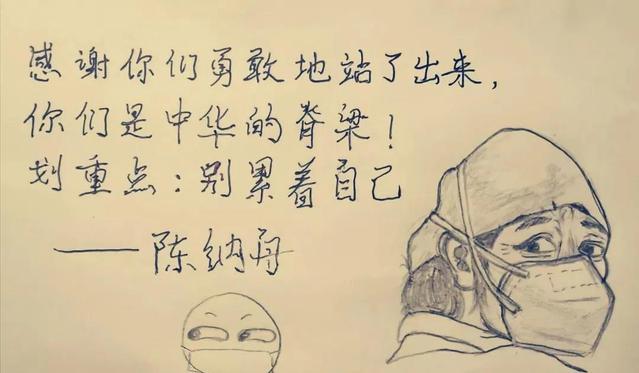 感谢你们勇敢地站了出来，
你们是中华的脊梁！
划重点：别累着自己
——陈纳舟